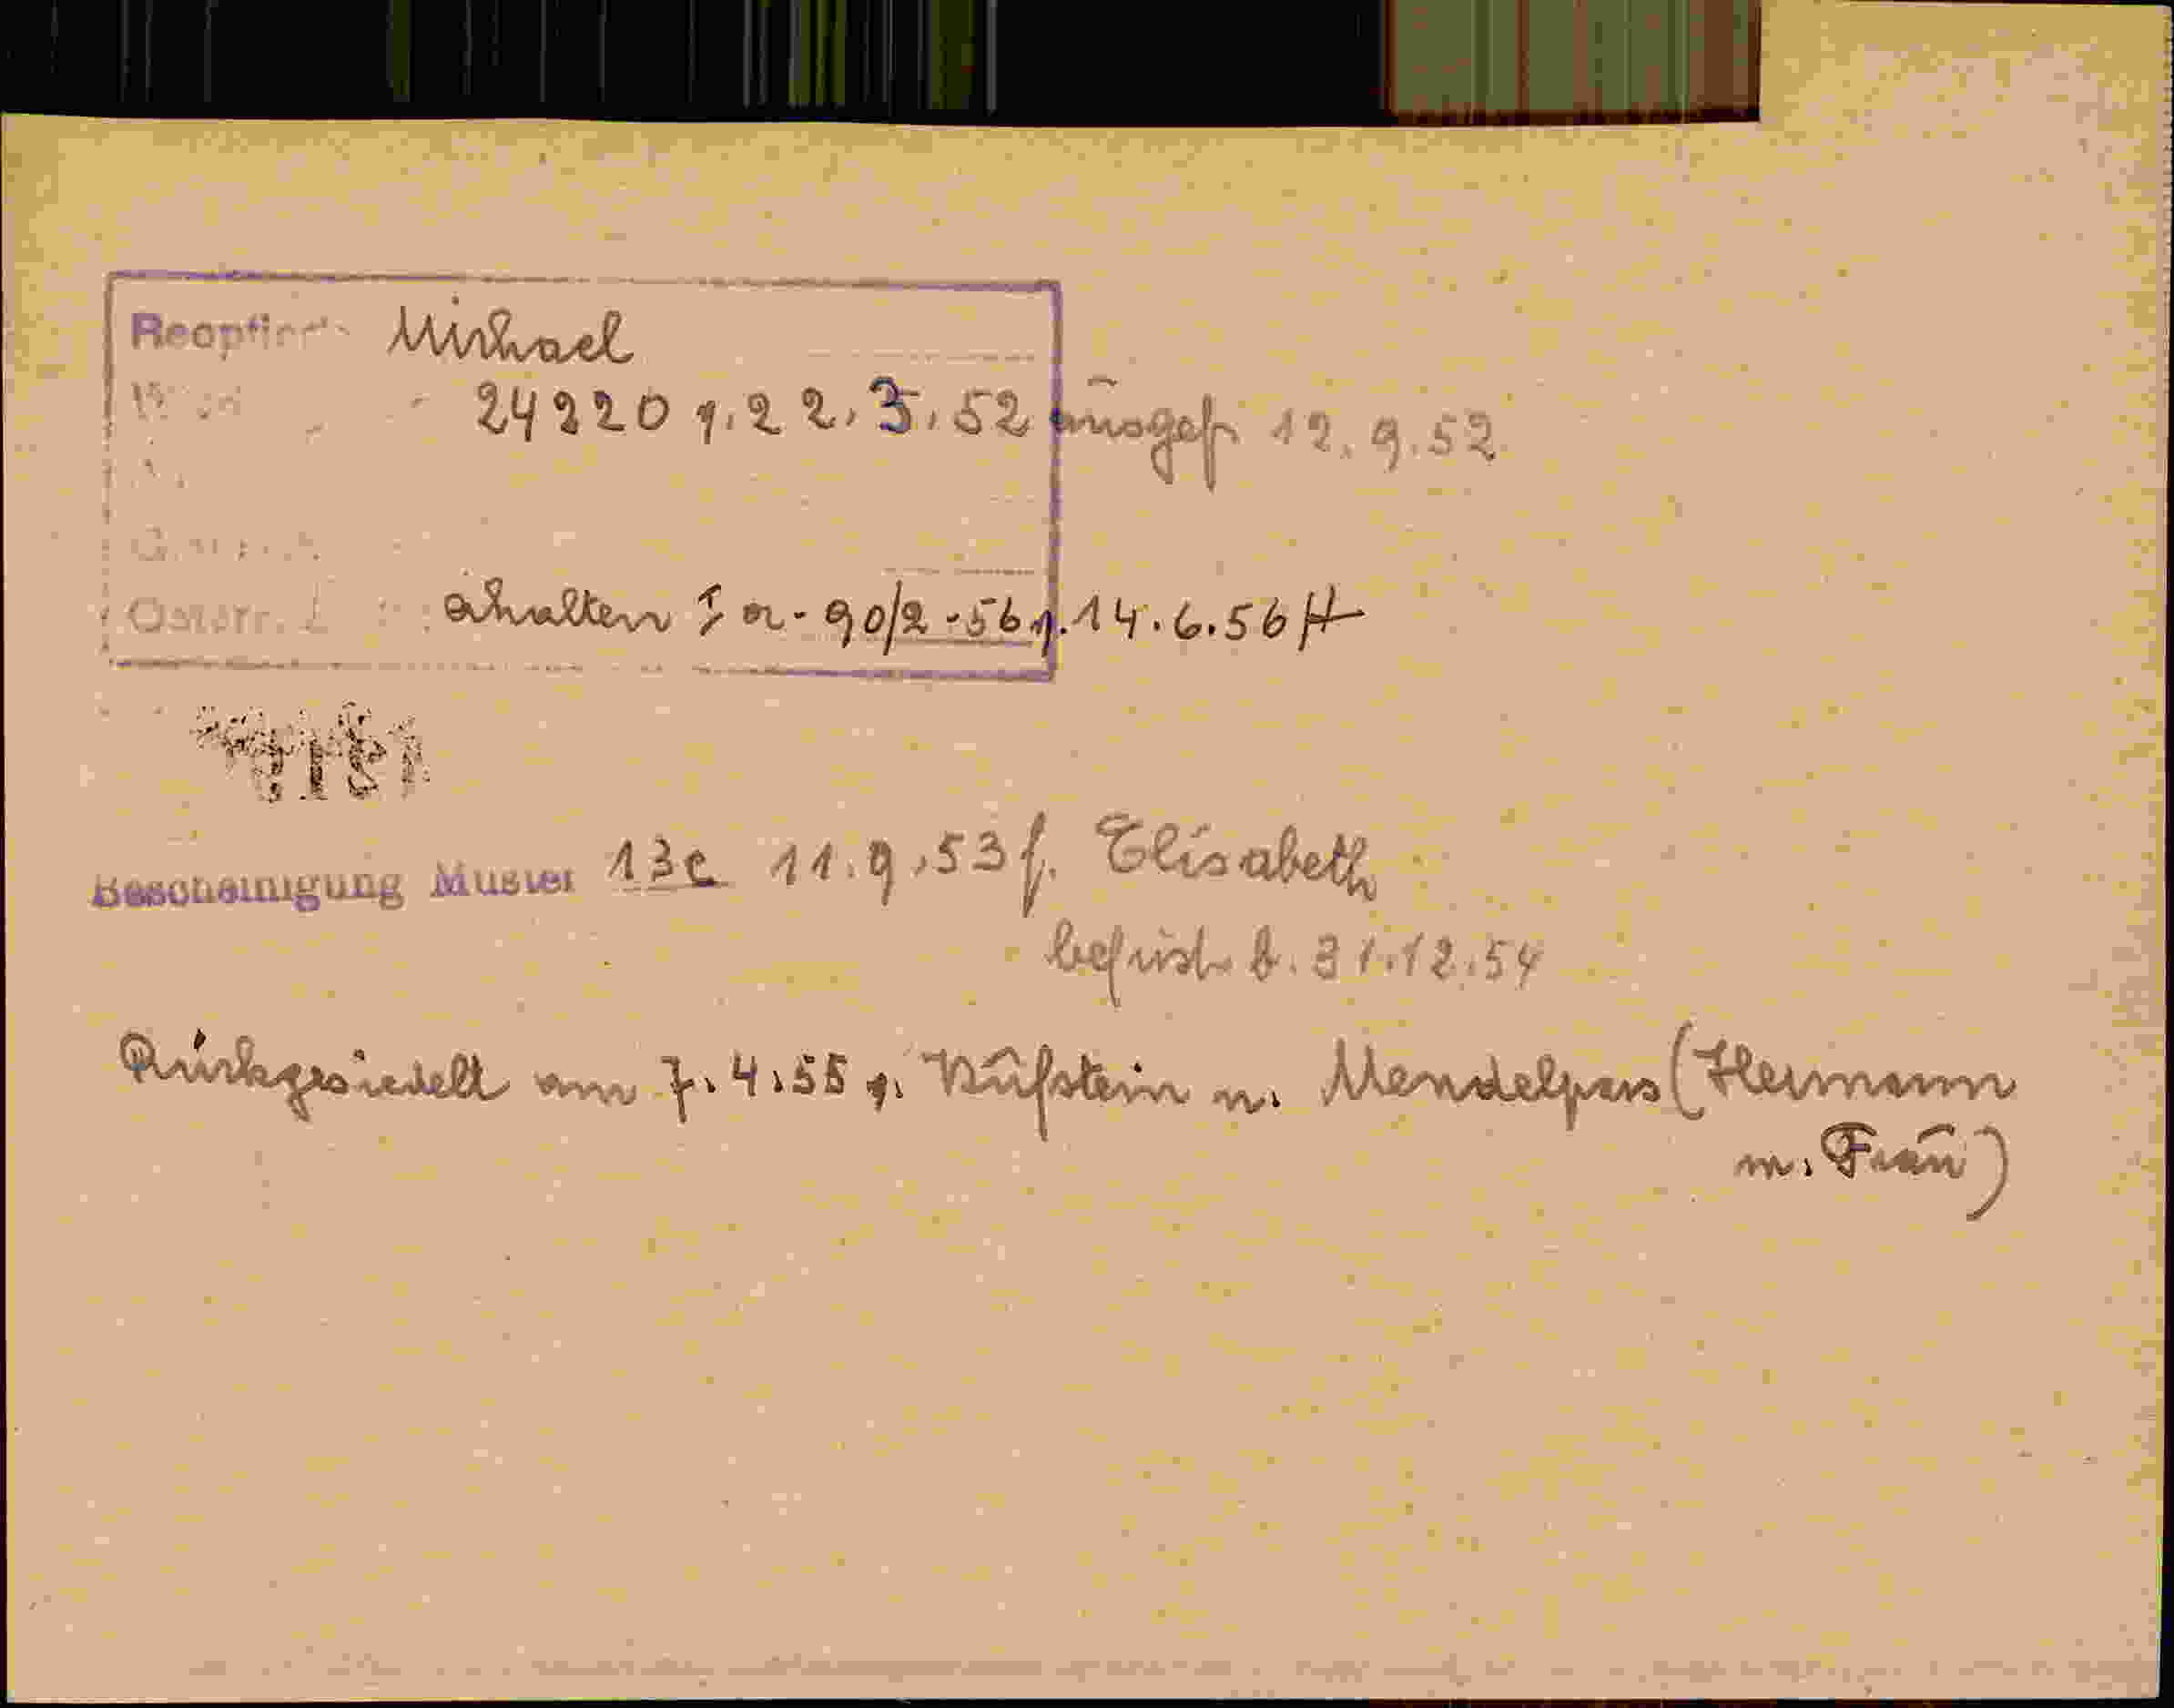 Michael
24220 v. 22.3.52 ausgef. 12.9.52
erhalten I a - 90/2 - 56 v. 14.6.56
Bescheinigung Muster 13c 11.9.53 f. Elisabeth
befrist. b. 31.12.54
Rückgesiedelt am 7.4.55 v. Kufstein n. Mendelpass (Hermann
m. Frau)